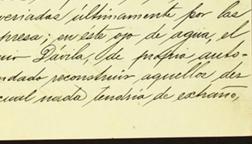 veriadas últimamente por las
presa; en este ojo de agua, el
Dávila, de propia auto-
ndado reconstruir aquellos des
cual nada tendría de extraño,